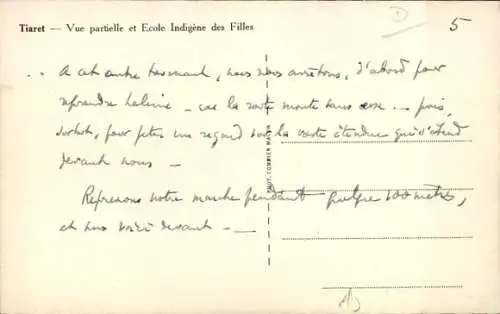 Tiaret — Vue partielle et Ecole Indigène des Filles
5
.. A cet autre tournant, nous nous arrêtons, d'abord pour
reprendre haleine — car la route monte sans cesse — puis,
surtout, pour jeter un regard sur la vaste étendue qui s'étend
devant nous —
Reprenons notre marche pendant quelque 100 mètres,
et nous voici devant — —
PHOT. COMBIER MACON